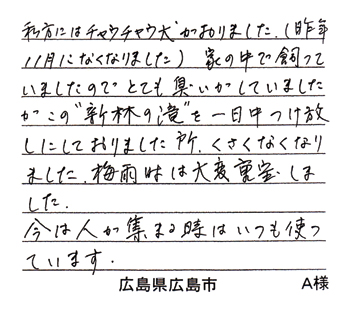 私方にはチャウチャウ犬がおりました。(昨年
11月になくなりました) 家の中で飼って
いましたのでとても臭いがしていました
がこの"新林の滝"を一日中つけ放
しにしておりました所、くさくなくなり
ました。梅雨時は大変重宝しま
した。
今は人が集まる時はいつも使っ
ています。
広島県広島市 A様